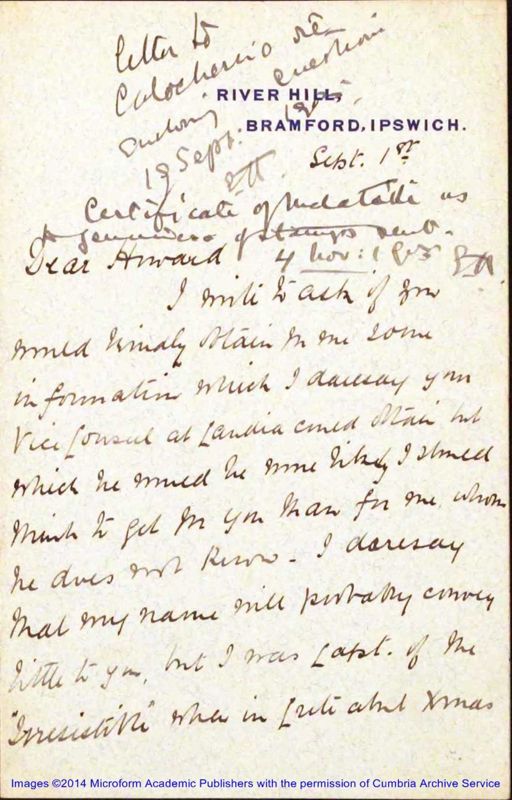 letter to
Calocherino re
enclosing question
RIVER HILL,
BRAMFORD, IPSWICH.
19 Sept. 1903.
Sept. 1st
Certificate of as
to genuineness of stamps sent.
Dear Howard
4 Nov: 1903
I write to ask if you
would kindly obtain for me some
information which I daresay your
Vice Consul at Candia could obtain but
which he would be more likely I should
think to get for you than for me, whom
he does not know - I daresay
that my name will probably convey
little to you, but I was Capt. of the
"Irresistible" when in Crete about Xmas
Images ©2014 Microform Academic Publishers with the permission of Cumbria Archive Service